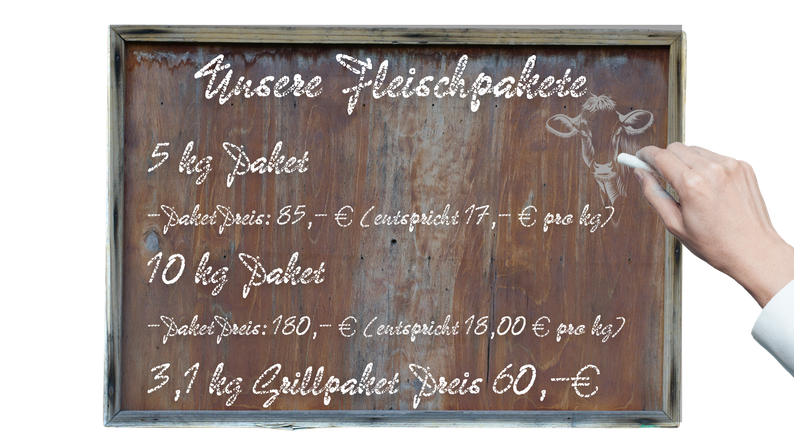 Unsere Fleischpakete
5 kg Paket
-PaketPreis: 85,- € (entspricht 17,- € pro kg)
10 kg Paket
-PaketPreis: 180,- € (entspricht 18,00 € pro kg)
3,1 kg Grillpaket Preis 60,-€